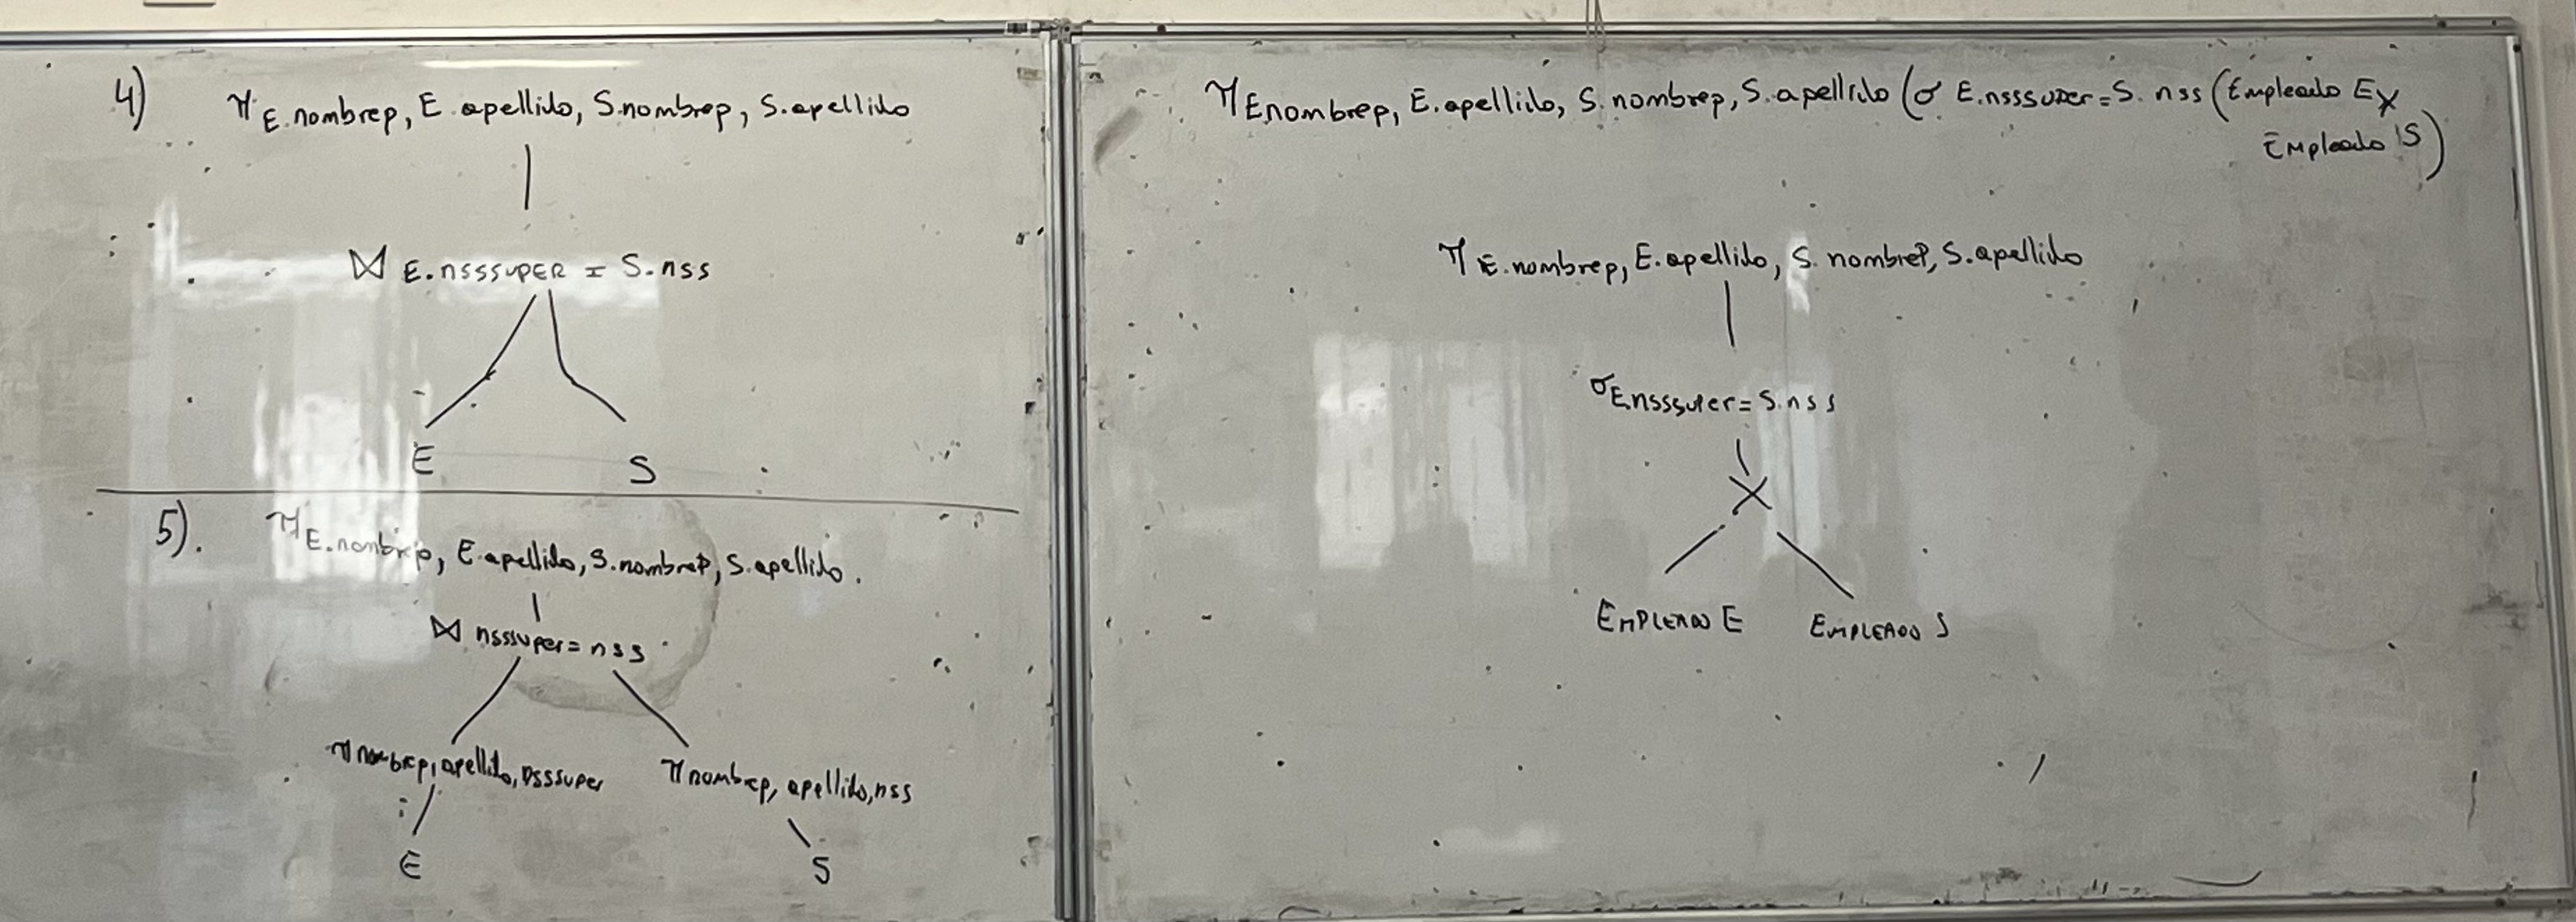 4)
π E.nombrep, E.apellido, S.nombrep, S.apellido
⋈ E.nsssuper = S.nss
E S
5).
π E.nombrep, E.apellido, S.nombrep, S.apellido.
⋈ nsssuper = nss
π nombrep, apellido, nsssuper π nombrep, apellido, nss
E S
π E.nombrep, E.apellido, S.nombrep, S.apellido (σ E.nsssuper = S.nss (Empleado E X
Empleado S)
π E.nombrep, E.apellido, S.nombrep, S.apellido
σ E.nsssuper = S.nss
X
EMPLEADO E EMPLEADO S